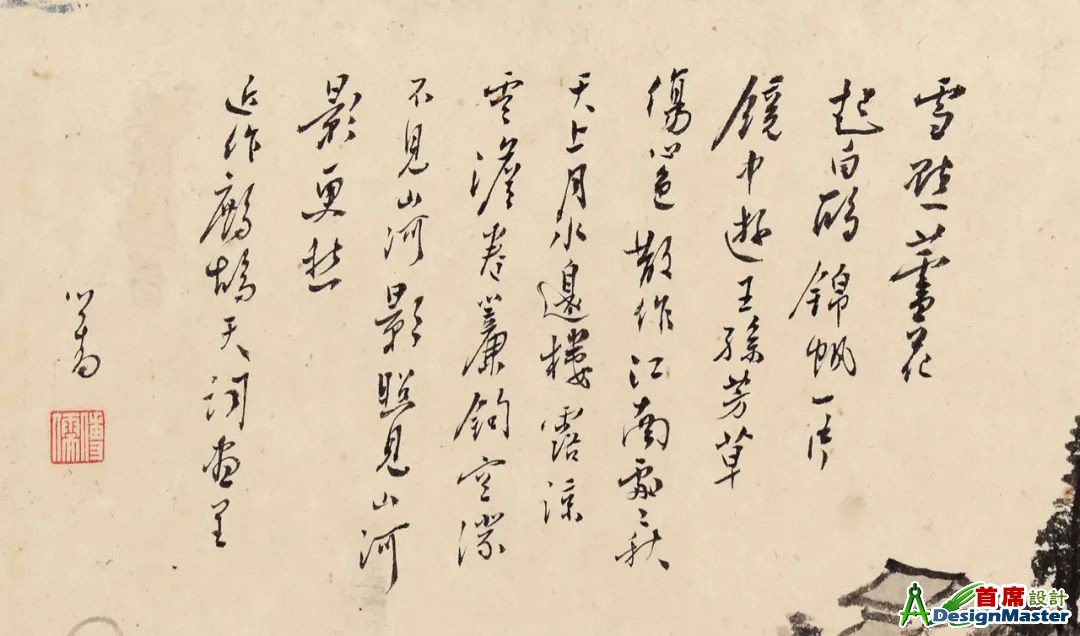 雪點蘆花
起白鷗錦帆一片
鏡中遊王孫芳草
傷心色散作江南處〻秋
天上月水邊樓露涼
雲澹卷簾鉤空濛
不見山河影照見山河
影更愁
近作鷓鴣天詞呈
心畬
溥儒
首席設計
DesignMaster